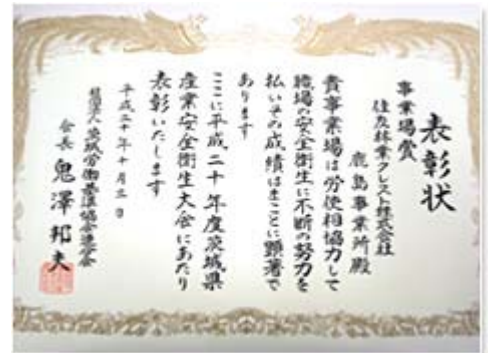 表彰状
事業場賞
住友林業クレスト株式会社
鹿島事業所殿
貴事業場は労使相協力して
職場の安全衛生に不断の努力を
払いその成績はまことに顕著で
あります
ここに平成二十年度茨城県
産業安全衛生大会にあたり
表彰いたします
平成二十年十月三日
社団法人茨城労働基準協会連合会
会長 鬼澤邦夫